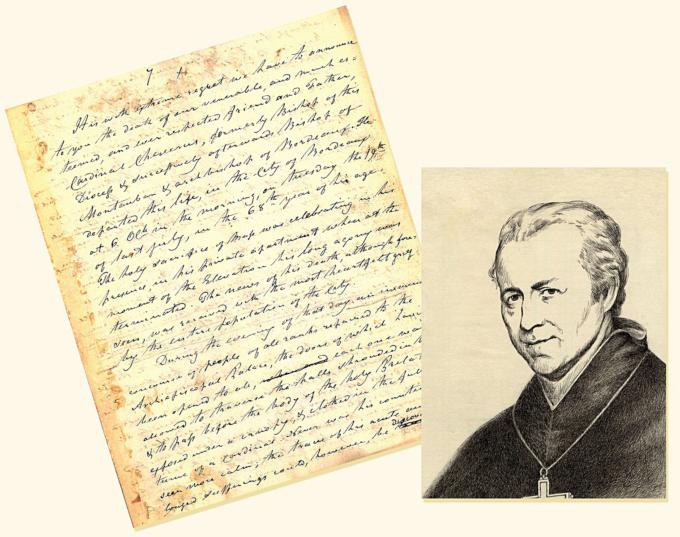 7 +
It is with extreme regret we have to announce
to you the death of our venerable, and much es=
teemed, and ever respected friend and Father,
Cardinal Cheverus, formerly Bishop of this
Diocess & successively afterwards Bishop of
Montauban & archbishop of Bordeaux. He
departed this life, in the City of Bordeaux
at 6. Oclk in the morning, on tuesday the 19th
of last july, in the 68th year of his age.
The holy sacrifice of Mass was celebrating in his
presence, in his private apartment when at the
moment of the Elevation his long agony was
terminated. The news of his death although
was received with the most heartfelt grief
by the entire population of the City.
During the evening of that day, an
concourse of people of all ranks repaired to the
Archiepiscopal Palace, the doors of which
been opened to all, each one was
allowed to traverse the halls shrouded in
& to pass before the body of the holy Prelate
exposed under a canopy, & clothed in the
of a cardinal. Never was his
seen more calm; the trace of his acute
longed sufferings could, however, be